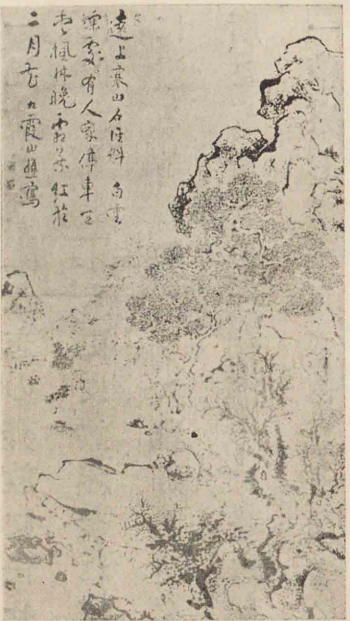 遠上寒山石徑斜白雲
深處有人家停車坐
愛楓林晚霜葉紅於
二月花 九霞山樵寫